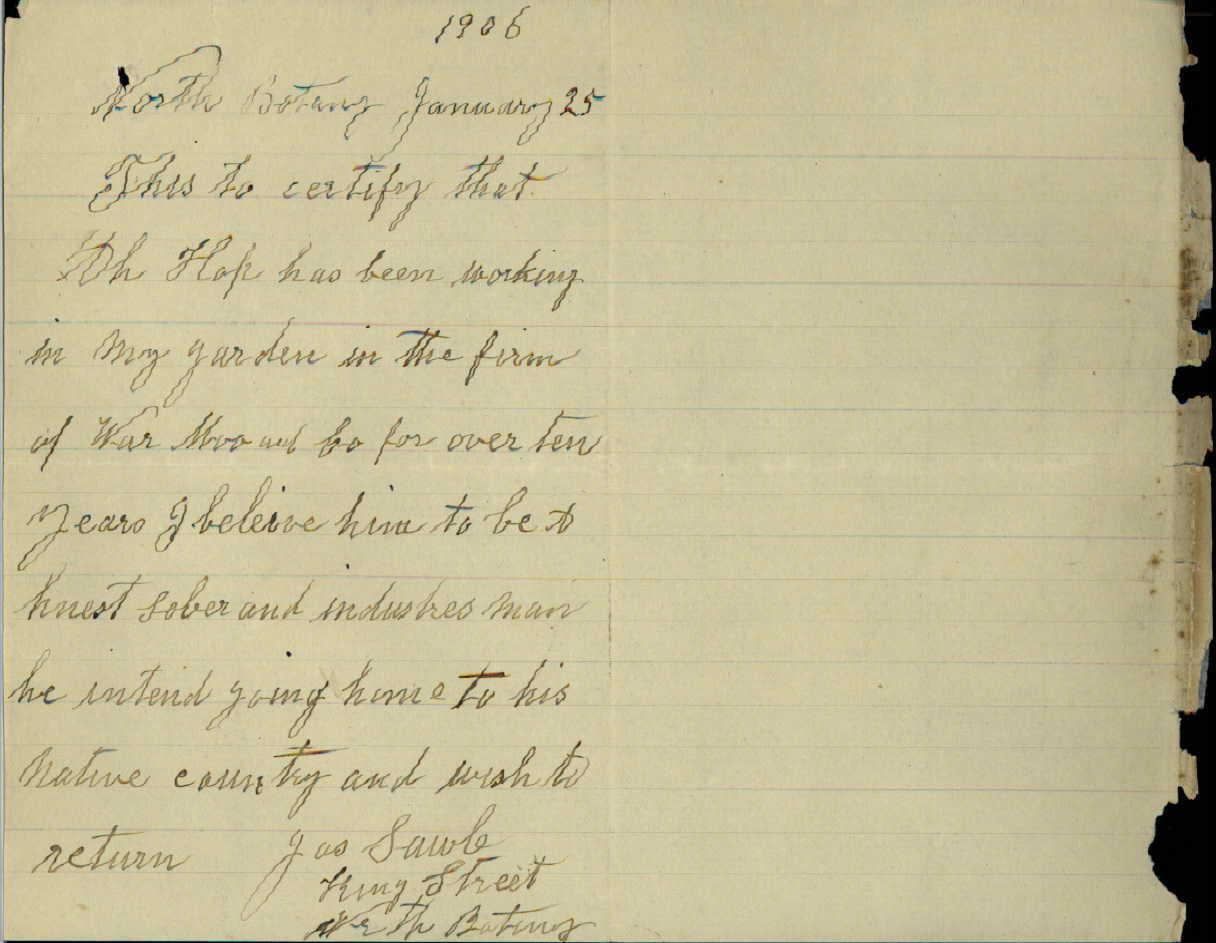 1906
North Botany January 25
This to certify that
Oh Hop has been working
in My garden in the firm
of War Moo and Co for over ten
years I beleive him to be a
hnest sober and industres man
he intend going home to his
Native country and wish to
return Jas Sawb
King Street
North Botany